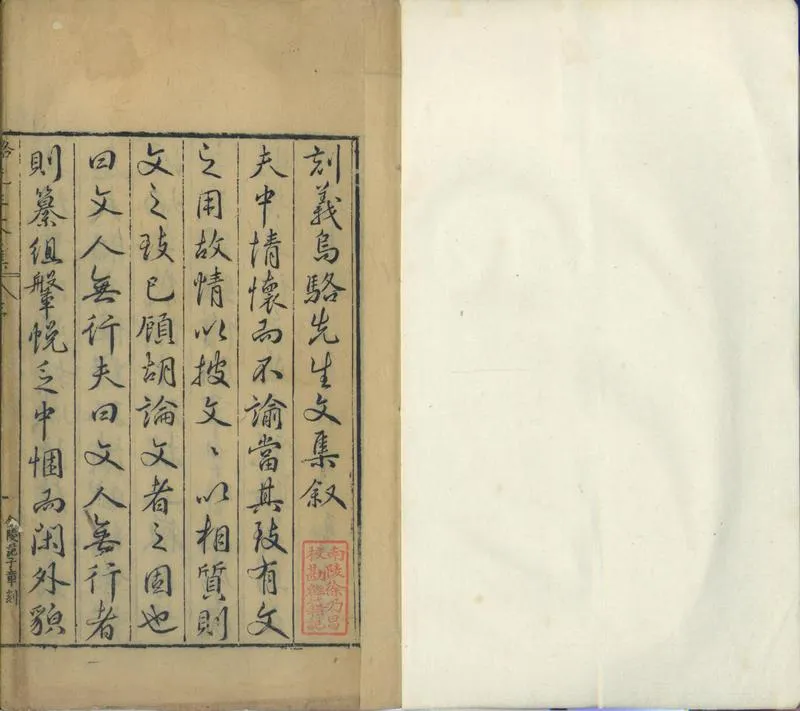 刻義烏駱先生文集叙
夫中情懷而不諭當其致有文
之用故情以披文〻以相質則
文之致已顧胡論文者之固也
曰文人無行夫曰文人無行者
則纂組鞶帨之中悃而闲外貌
南陵徐乃昌
校勘經籍記